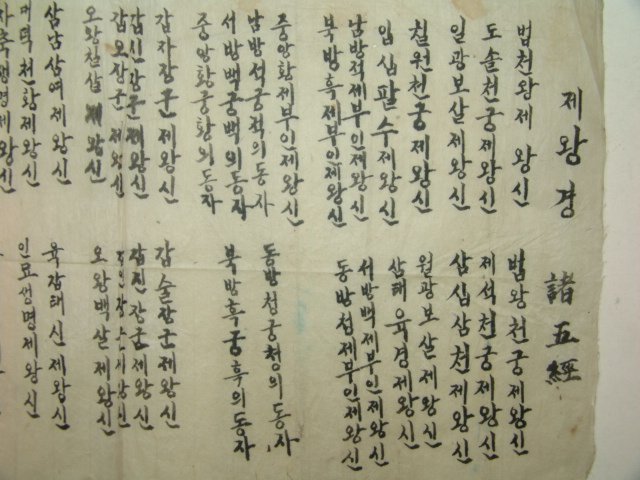 제왕경 諸五經
법천왕제왕신 범왕천궁제왕신
도솔천궁제왕신 제석천궁제왕신
일광보살제왕신 삼십삼천제왕신
칠원천궁제왕신 월광보살제왕신
입십팔수제왕신 삼태육경제왕신
남방적제부인제왕신 서방백제부인제왕신
북방흑제부인제왕신 동방첩제부인제왕신
중앙황제부인제왕신
남방석궁적의동자 동방청궁청의동자
서방백궁백의동자 북방흑궁흑의동자
중앙황궁황의동자
갑자장군제왕신 갑술장군제왕신
갑신장군제왕신 갑진장군제왕신
갑오장군제왕신
오왕칠살제왕신 오왕백살제왕신
삼남삼여제왕신 육갑태신제왕신
대덕천황제왕신 인묘생명제왕신
자축생명제왕신